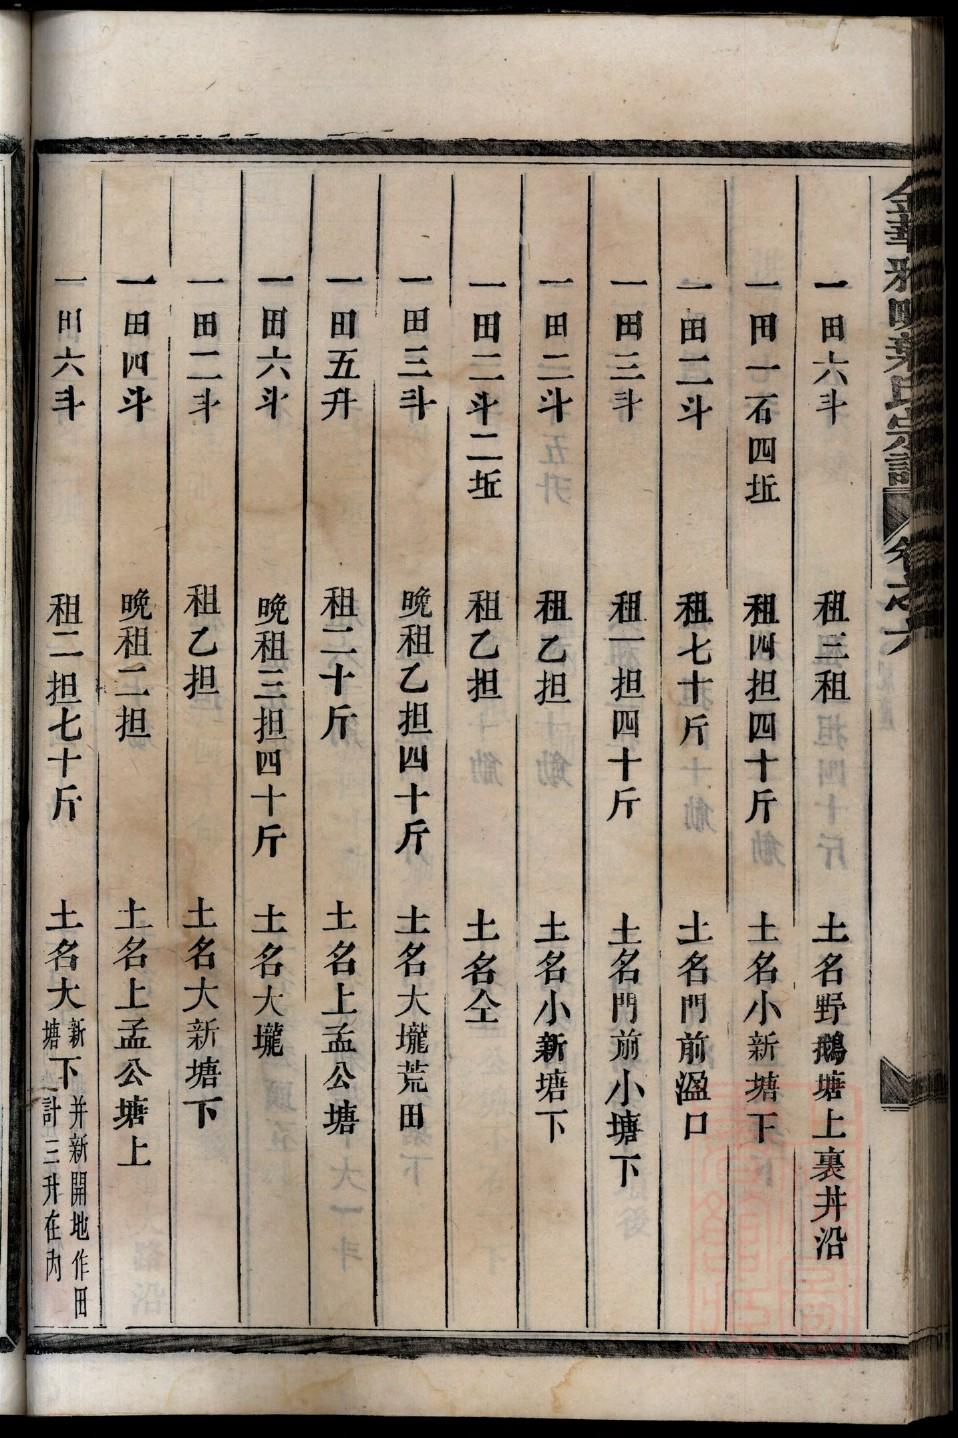 一田六斗 租三租 土名野鵝塘上裏井沿
一田一石四坵 租四担四十斤 土名小新塘下
一田二斗 租七十斤 土名門前溋口
一田三斗 租一担四十斤 土名門前小塘下
一田二斗 租乙担 土名小新塘下
一田二斗二坵 租乙担 土名仝
一田三斗 晚租乙担四十斤 土名大壠荒田
一田五升 租二十斤 土名上孟公塘
一田六斗 晚租三担四十斤 土名大壠
一田二斗 租乙担 土名大新塘下
一田四斗 晚租二担 土名上孟公塘上
一田六斗 租二担七十斤 土名大新塘下 并新開地作田計三升在內